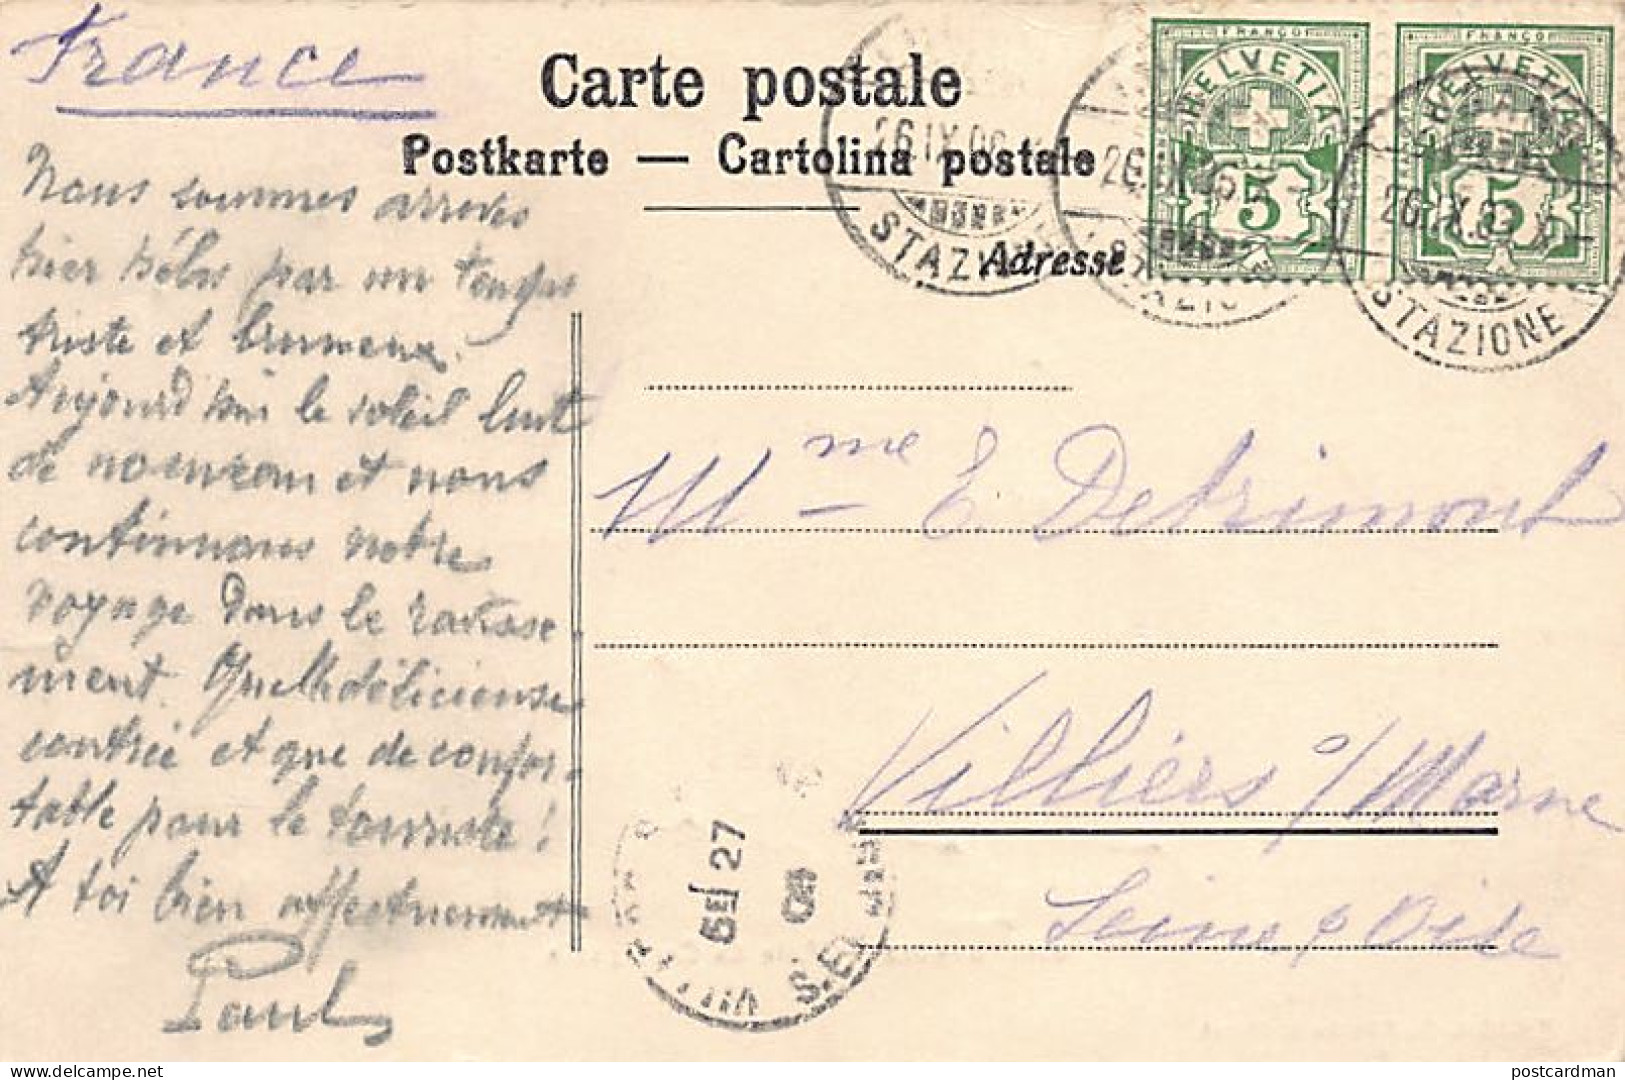 France
Carte postale
Postkarte — Cartolina postale
Adresse
FRANCO FRANCO
HELVETIA HELVETIA
5 5
26 IX 06
26.IX.06
26.IX.0
STAZI
STAZIONE
Nous sommes arrivés
hier hélas par un temps
triste et brumeux.
Aujourd'hui le soleil luit
de nouveau et nous
continuons notre
voyage dans le ravisse
ment. Quelle délicieuse
contrée et que de confor-
table pour le touriste !
A toi bien affectueusement
Paul
Mme E. Detrimont
Villiers s/ Marne
Seine & Oise
5E 27
06
S.ET
postcardman